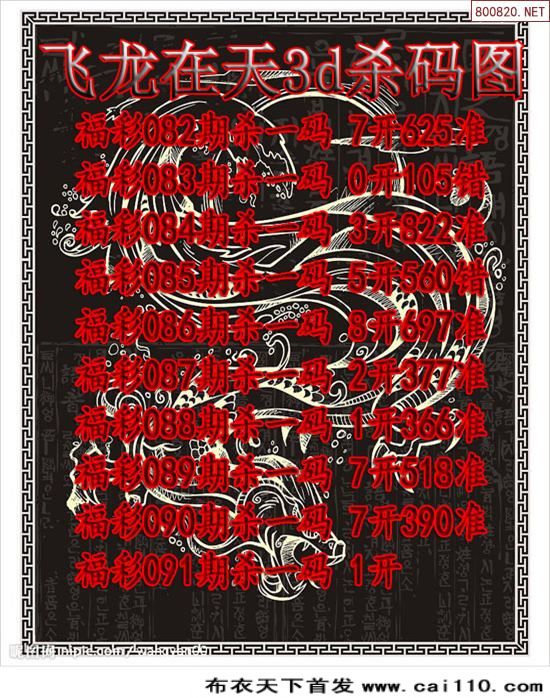 800820.NET
飞龙在天3d杀码图
福彩082期杀一码 7开625准
福彩083期杀一码 0开105错
福彩084期杀一码 3开822准
福彩085期杀一码 5开560错
福彩086期杀一码 8开697准
福彩087期杀一码 2开377准
福彩088期杀一码 1开366准
福彩089期杀一码 7开518准
福彩090期杀一码 7开390准
福彩091期杀一码 1开
布衣天下首发 www.cai110.com